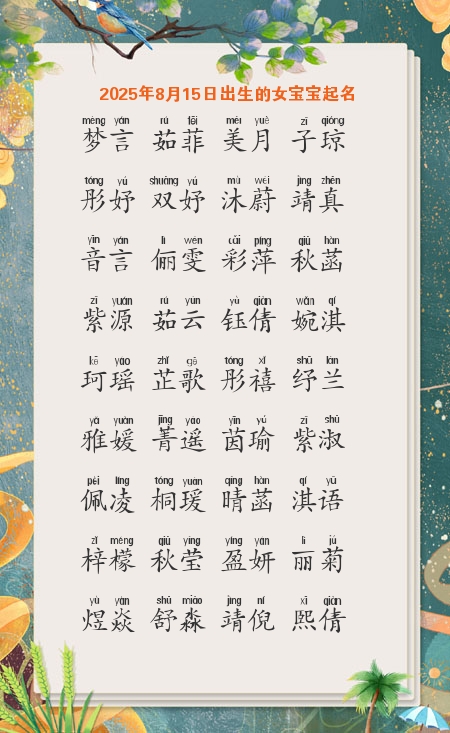 2025年8月15日出生的女宝宝起名
mèng yán rú fēi měi yuè zǐ qióng
梦言 茹菲 美月 子琼
tóng yú shuāng yú mù wèi jìng zhēn
彤妤 双妤 沐蔚 靖真
yīn yán lì wén cǎi píng qiū hàn
音言 俪雯 彩萍 秋菡
zǐ yuán rú yún yù qiàn wǎn qí
紫源 茹云 钰倩 婉淇
kē yáo zhǐ gē tóng xǐ shū lán
珂瑶 芷歌 彤禧 纾兰
yǎ yuàn jīng yáo yīn yú zǐ shū
雅媛 菁遥 茵瑜 紫淑
pèi líng tóng yuàn qíng hàn qí yǔ
佩凌 桐瑗 晴菡 淇语
zǐ méng qiū yíng yíng yán lì jú
梓檬 秋莹 盈妍 丽菊
yù yàn shū miǎo jìng ní xī qiàn
煜焱 舒淼 靖倪 熙倩